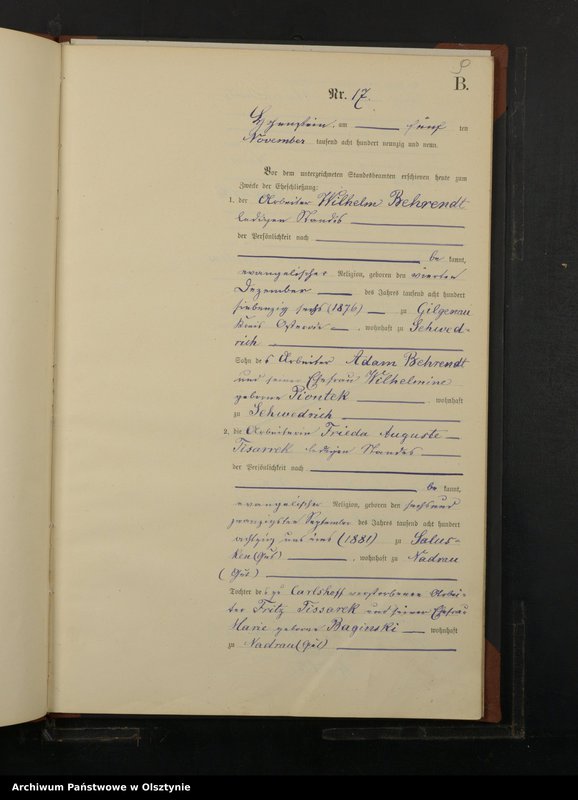 9
B.
Nr. 17.
Hohenstein, am fünf ten
November tausend acht hundert neunzig und neun.
Vor dem unterzeichneten Standesbeamten erschienen heute zum
Zwecke der Eheschließung:
1. der Arbeiter Wilhelm Behrendt
ledigen Standes
der Persönlichkeit nach
be kannt,
evangelischer Religion, geboren den vierten
Dezember des Jahres tausend acht hundert
siebenzig sechs (1876) zu Gilgenau
Kreis Osterode, wohnhaft zu Schwed-
rich
Sohn des Arbeiter Adam Behrendt
und seiner Ehefrau Wilhelmine
geborne Piontek wohnhaft
zu Schwedrich
2. die Arbeiterin Frieda Auguste
Tisarrek ledigen Standes
der Persönlichkeit nach
be kannt,
evangelischer Religion, geboren den sechs und
zwanzigsten September des Jahres tausend acht hundert
achtzig und eins (1881) zu Salus-
ken (Gut), wohnhaft zu Nadrau
(Gut)
Tochter des zu Carlshof verstorbenen Arbei-
ter Fritz Tissarek und seiner Ehefrau
Marie geborne Baginski wohnhaft
zu Nadrau (Gut)
Archiwum Państwowe w Olsztynie